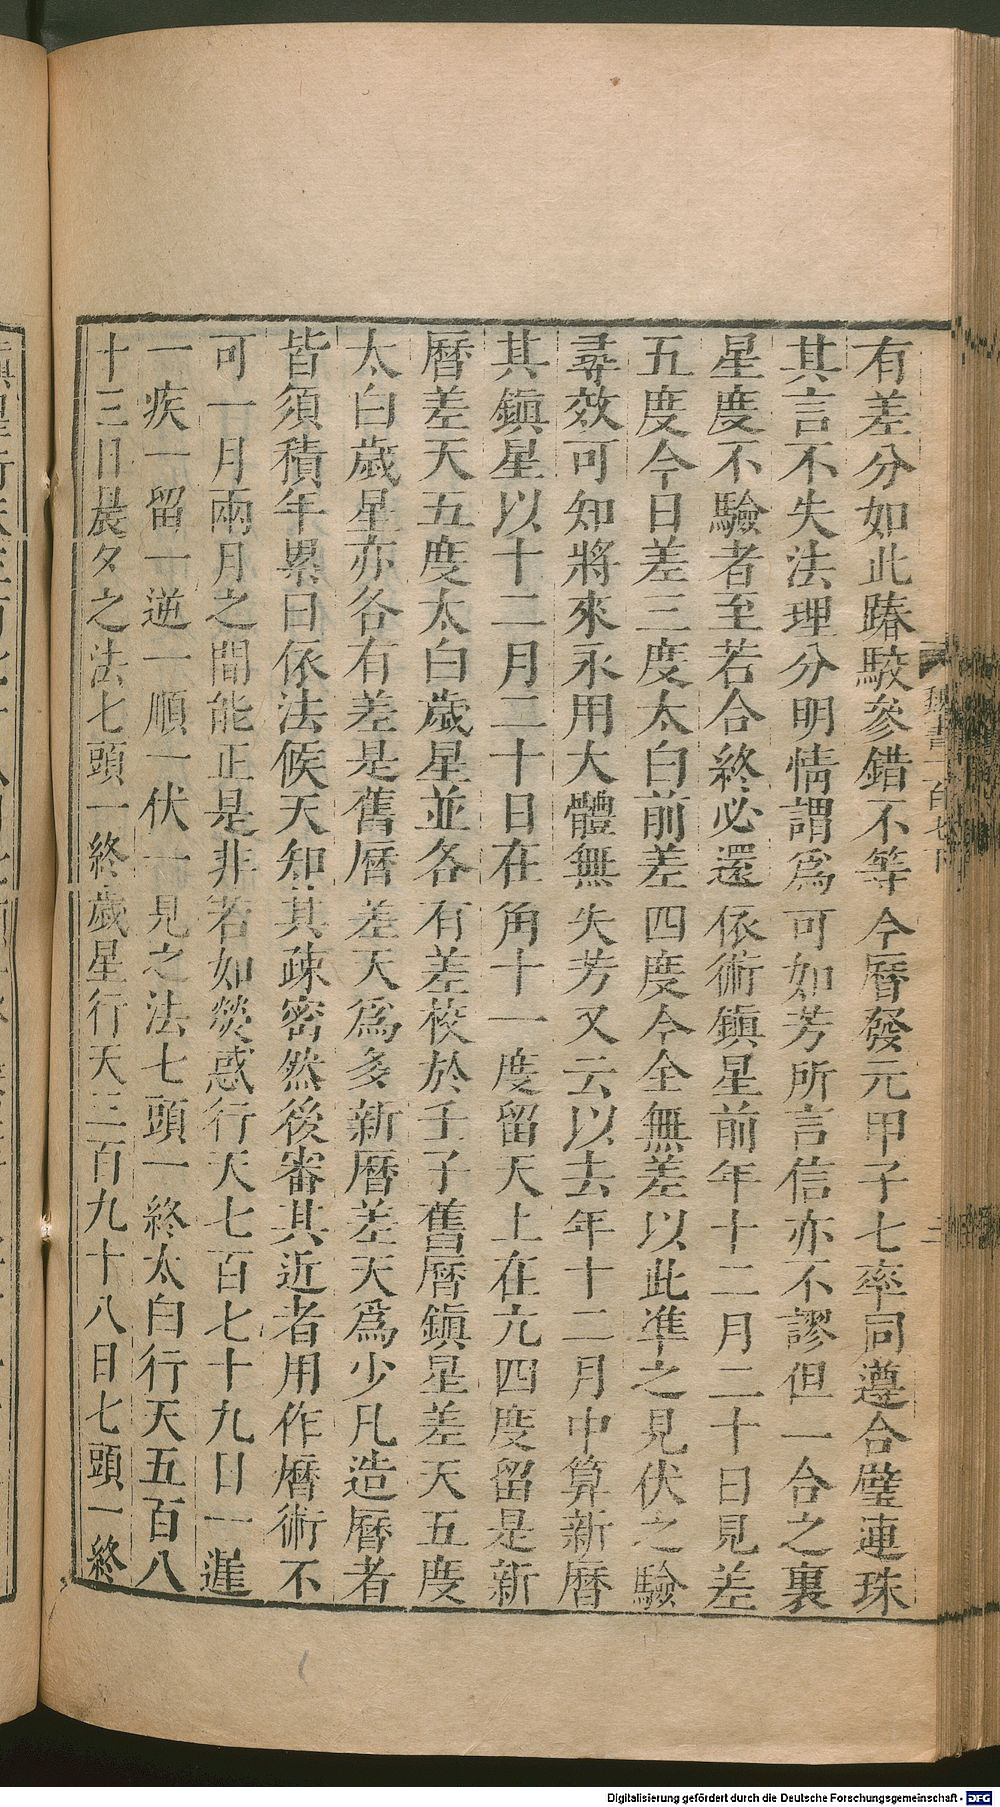 有差分如此踳駮參錯不等今曆發元甲子七率同遵合璧連珠
其言不失法理分明情謂爲可如芳所言信亦不謬但一合之裏
星度不驗者至若合終必還依術鎮星前年十二月二十日見差
五度今日差三度太白前差四度今全無差以此準之見伏之驗
尋效可知將來永用大體無失芳又云以去年十二月中算新曆
其鎮星以十二月二十日在角十一度留天上在亢四度留是新
曆差天五度太白歲星並各有差校於壬子舊曆鎮星差天五度
太白歲星亦各有差是舊曆差天爲多新曆差天爲少凡造曆者
皆須積年累日依法候天知其疎密然後審其近者用作曆術不
可一月兩月之間能正是非若如熒惑行天七百七十九日一遲
一疾一留一逆一順一伏一見之法七頭一終太白行天五百八
十三日晨夕之法七頭一終歲星行天三百九十八日七頭一終
Digitalisierung gefördert durch die Deutsche Forschungsgemeinschaft - DFG